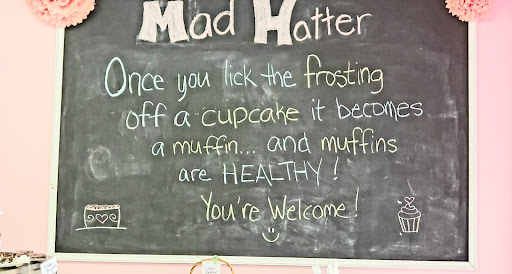 Mad Hatter
Once you lick the frosting
off a cupcake it becomes
a muffin... and muffins
are HEALTHY!
You're Welcome!